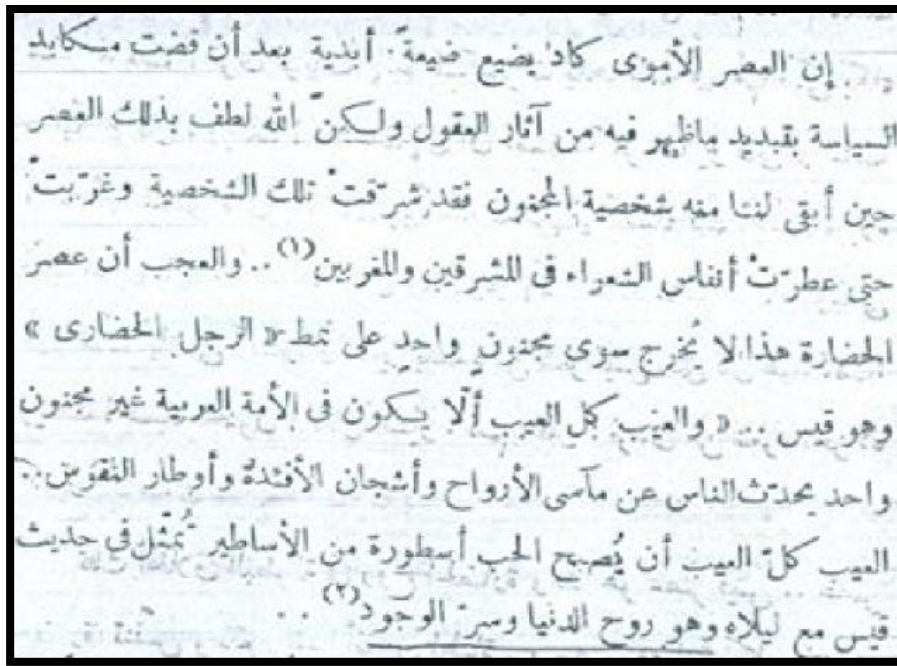 إن العصر الأموى كاد يضيع ضيعةً أبدية بعد أن قضت مكايد
السياسة بتبديد ماظهر فيه من آثار العقول ولكنّ الله لطف بذلك العصر
حين أبقى لنا منه شخصية المجنون فقد شرّقتْ تلك الشخصية وغرّبتْ
حتى عطرّتْ أنفاس الشعراء فى المشرقين والمغربين(١) .. والعجب أن عصر
الحضارة هذا لا يُخرج سوى مجنونٍ واحدٍ على نمط « الرجل الحضارى »
وهو قيس .. « والعيب كل العيب ألّا يكون فى الأمة العربية غير مجنون
واحد يحدّث الناس عن مآسى الأرواح وأشجان الأفئدة وأوطار النفوس ..
العيب كلّ العيب أن يُصبح الحب أسطورة من الأساطير تُمثّل فى حديث
قيس مع ليلاه وهو روح الدنيا وسرّ الوجود(٢) ..